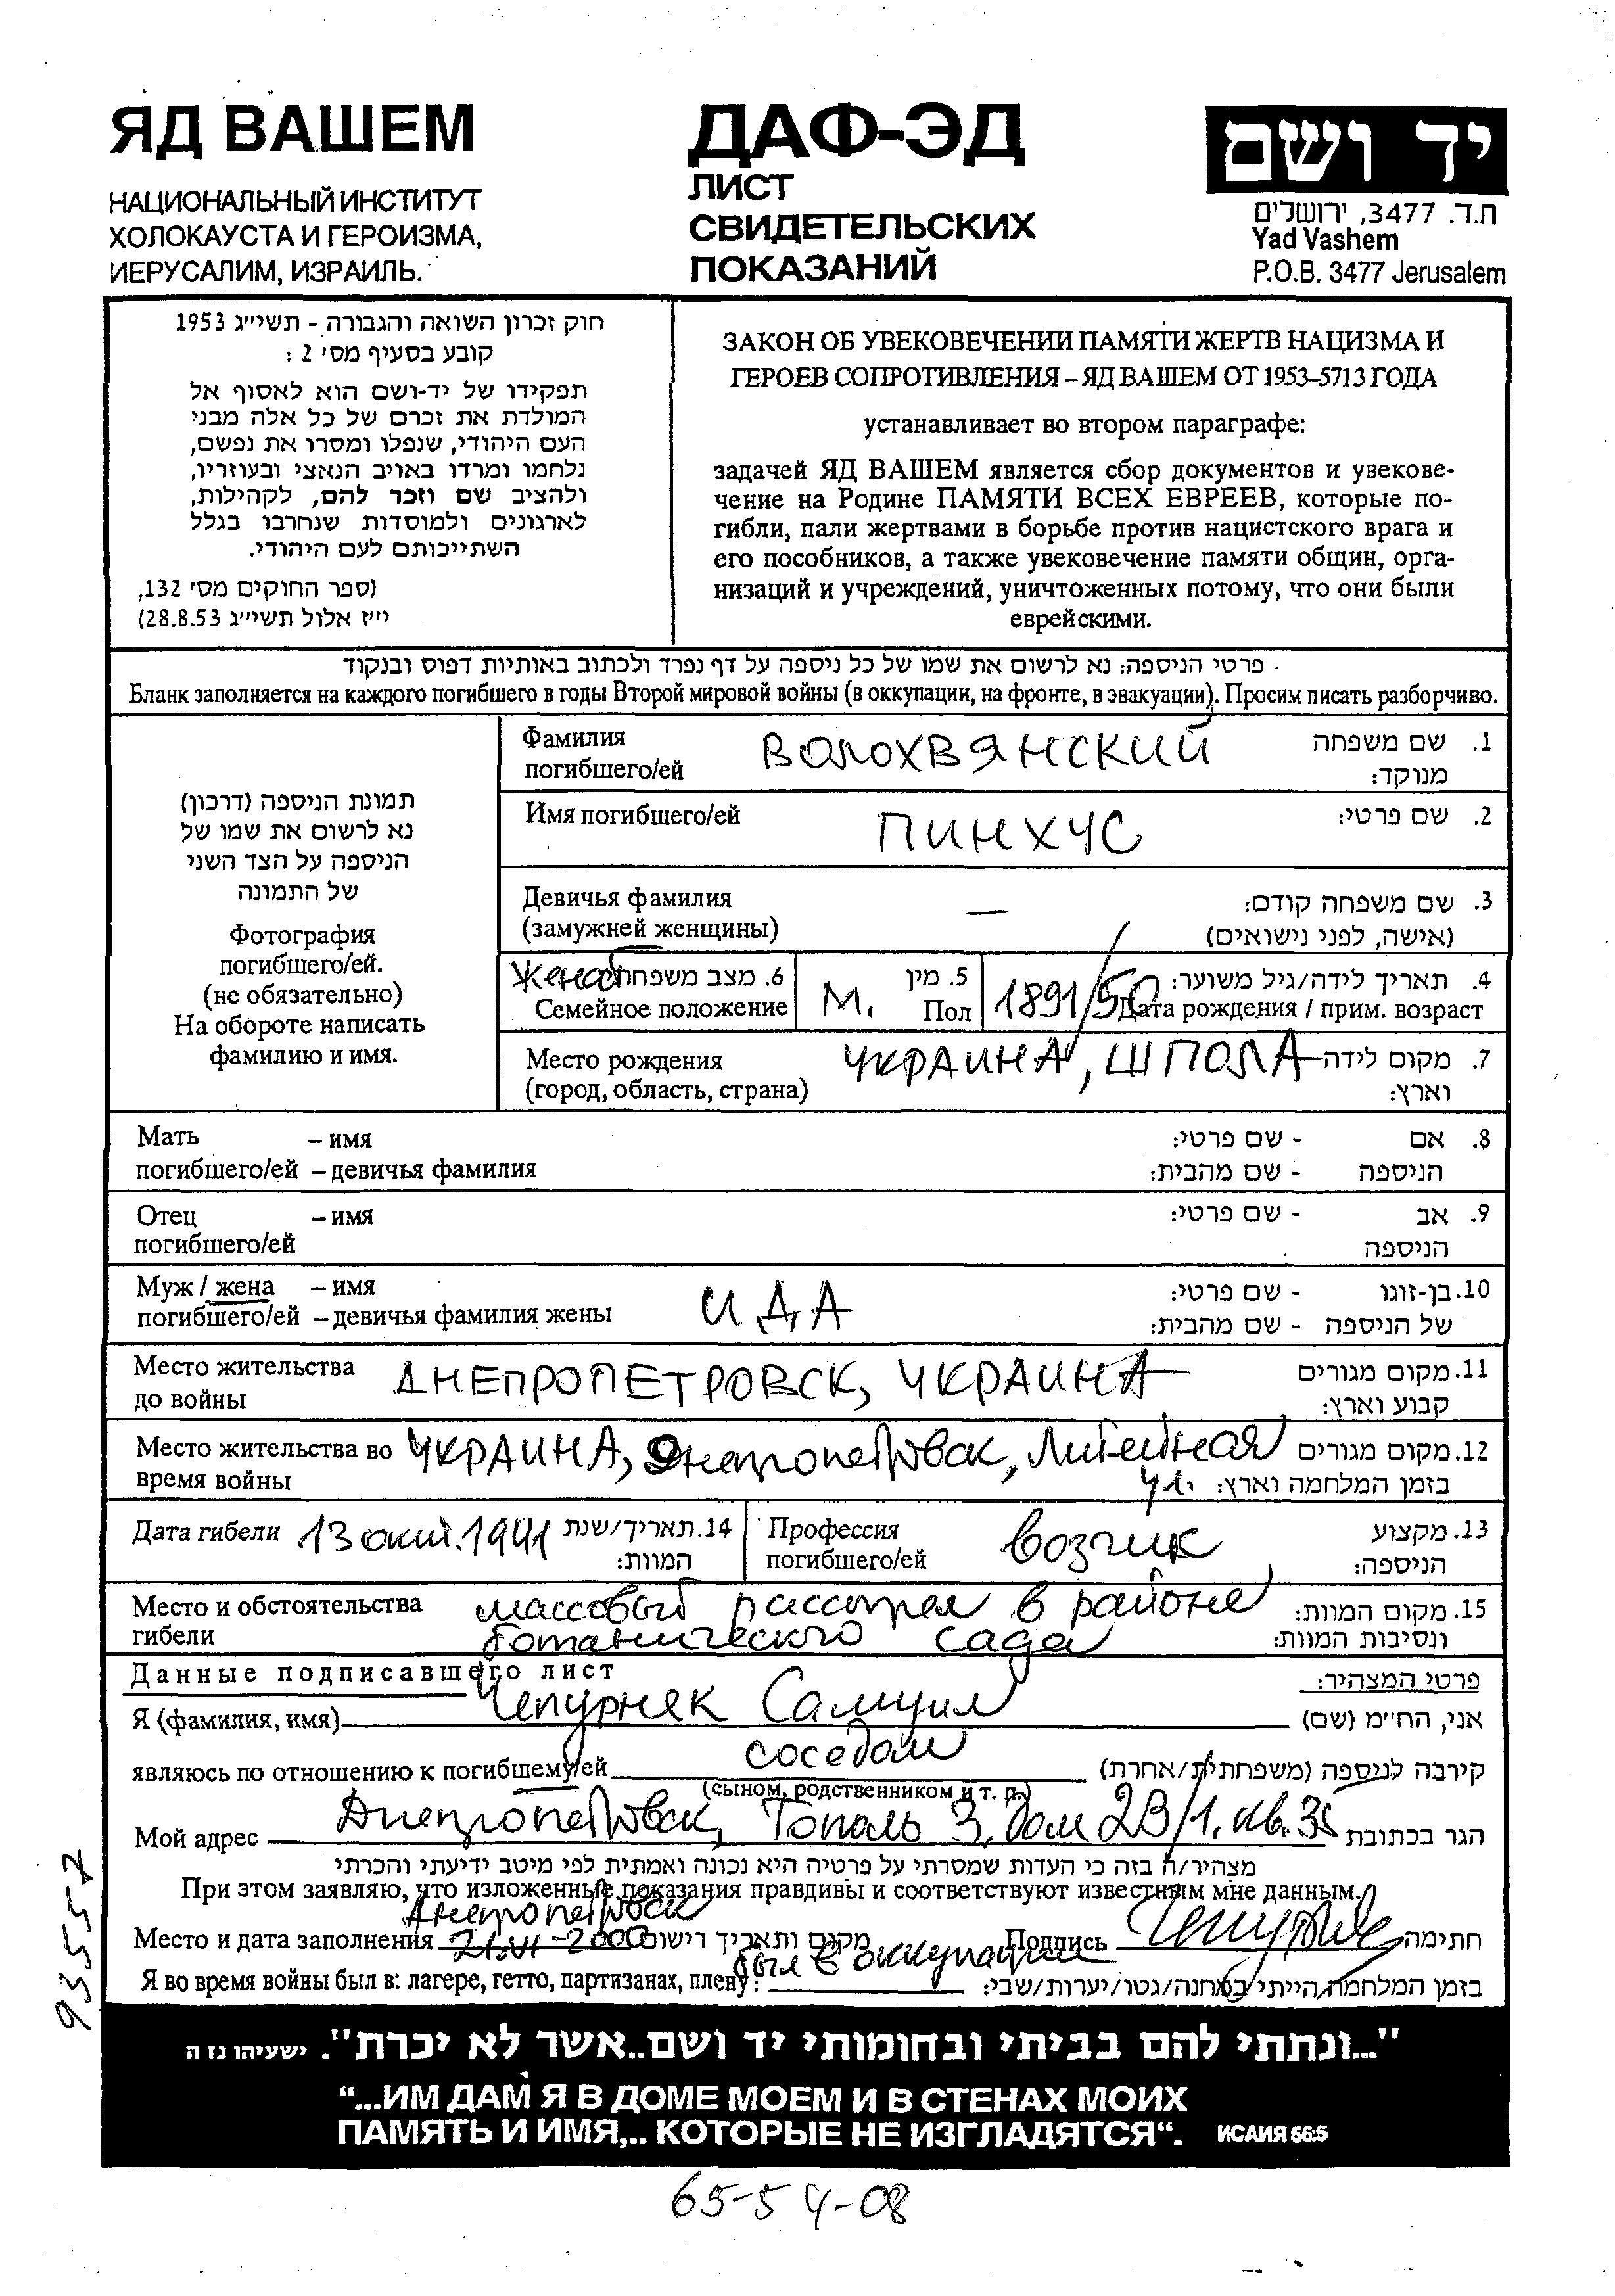 ЯД ВАШЕМ
НАЦИОНАЛЬНЫЙ ИНСТИТУТ
ХОЛОКАУСТА И ГЕРОИЗМА,
ИЕРУСАЛИМ, ИЗРАИЛЬ.
ДАФ-ЭД
ЛИСТ
СВИДЕТЕЛЬСКИХ
ПОКАЗАНИЙ
יד ושם
ת.ד. 3477, ירושלים
Yad Vashem
P.O.B. 3477 Jerusalem
חוק זכרון השואה והגבורה - תשי״ג 1953
קובע בסעיף מס׳ 2 :
תפקידו של יד-ושם הוא לאסוף אל
המולדת את זכרם של כל אלה מבני
העם היהודי, שנפלו ומסרו את נפשם,
נלחמו ומרדו באויב הנאצי ובעוזריו,
ולהציב שם וזכר להם, לקהילות,
לארגונים ולמוסדות שנחרבו בגלל
השתייכותם לעם היהודי.
(ספר החוקים מס׳ 132,
י״ז אלול תשי״ג 28.8.53)
ЗАКОН ОБ УВЕКОВЕЧЕНИИ ПАМЯТИ ЖЕРТВ НАЦИЗМА И
ГЕРОЕВ СОПРОТИВЛЕНИЯ – ЯД ВАШЕМ ОТ 1953–5713 ГОДА
устанавливает во втором параграфе:
задачей ЯД ВАШЕМ является сбор документов и увекове-
чение на Родине ПАМЯТИ ВСЕХ ЕВРЕЕВ, которые по-
гибли, пали жертвами в борьбе против нацистского врага и
его пособников, а также увековечение памяти общин, орга-
низаций и учреждений, уничтоженных потому, что они были
еврейскими.
פרטי הניספה: נא לרשום את שמו של כל ניספה על דף נפרד ולכתוב באותיות דפוס ובנקוד
Бланк заполняется на каждого погибшего в годы Второй мировой войны (в оккупации, на фронте, в эвакуации). Просим писать разборчиво.
תמונת הניספה (דרכון)
נא לרשום את שמו של
הניספה על הצד השני
של התמונה
Фотография
погибшего/ей.
(не обязательно)
На обороте написать
фамилию и имя.
Фамилия
погибшего/ей
ВОЛОХВЯНСКИЙ
1. שם משפחה
מנוקד:
Имя погибшего/ей
ПИНХУС
2. שם פרטי:
Девичья фамилия
(замужней женщины)
—
3. שם משפחה קודם:
(אישה, לפני נישואים)
6. מצב משפחתי
Семейное положение
5. מין
М. Пол
4. תאריך לידה/גיל משוער:
1891/50 Дата рождения / прим. возраст
Место рождения
(город, область, страна)
УКРАИНА, ШПОЛА
7. מקום לידה
וארץ:
Мать – имя
погибшего/ей – девичья фамилия
8. אם - שם פרטי:
הניספה - שם מהבית:
Отец – имя
погибшего/ей
9. אב - שם פרטי:
הניספה
Муж / жена – имя
погибшего/ей – девичья фамилия жены
ИДА
10. בן-זוגו - שם פרטי:
של הניספה - שם מהבית:
Место жительства
до войны
ДНЕПРОПЕТРОВСК, УКРАИНА
11. מקום מגורים
קבוע וארץ:
Место жительства во
время войны
УКРАИНА, Днепропетровск, Литейная
ул.
12. מקום מגורים
בזמן המלחמה וארץ:
Дата гибели 13 окт. 1941
14. תאריך/שנת
המוות:
Профессия
погибшего/ей
возчик
13. מקצוע
הניספה:
Место и обстоятельства
гибели
массовый расстрел в районе
ботанического сада
15. מקום המוות:
ונסיבות המוות:
Данные подписавшего лист
פרטי המצהיר:
Я (фамилия, имя) Чепурняк Самуил
אני, הח״מ (שם)
являюсь по отношению к погибшему/ей соседом
(сыном, родственником и т. п.)
קירבה לניספה (משפחתית/אחרת)
Мой адрес Днепропетровск, Тополь 3, дом 23/1, кв. 35
הגר בכתובת
מצהיר/ה בזה כי העדות שמסרתי על פרטיה היא נכונה ואמתית לפי מיטב ידיעתי והכרתי
При этом заявляю, что изложенные показания правдивы и соответствуют известным мне данным.
Днепропетровск
Место и дата заполнения 21.VI-2000 מקום ותאריך רישום
Подпись
חתימה
Я во время войны был в: лагере, гетто, партизанах, плену: был в оккупации
בזמן המלחמה הייתי במחנה/גטו/יערות/שבי:
"...ונתתי להם בביתי ובחומותי יד ושם..אשר לא יכרת". ישעיהו נז ה
“...ИМ ДАМ Я В ДОМЕ МОЕМ И В СТЕНАХ МОИХ
ПАМЯТЬ И ИМЯ,.. КОТОРЫЕ НЕ ИЗГЛАДЯТСЯ“. ИСАИЯ 56:5
93557
65-54-08